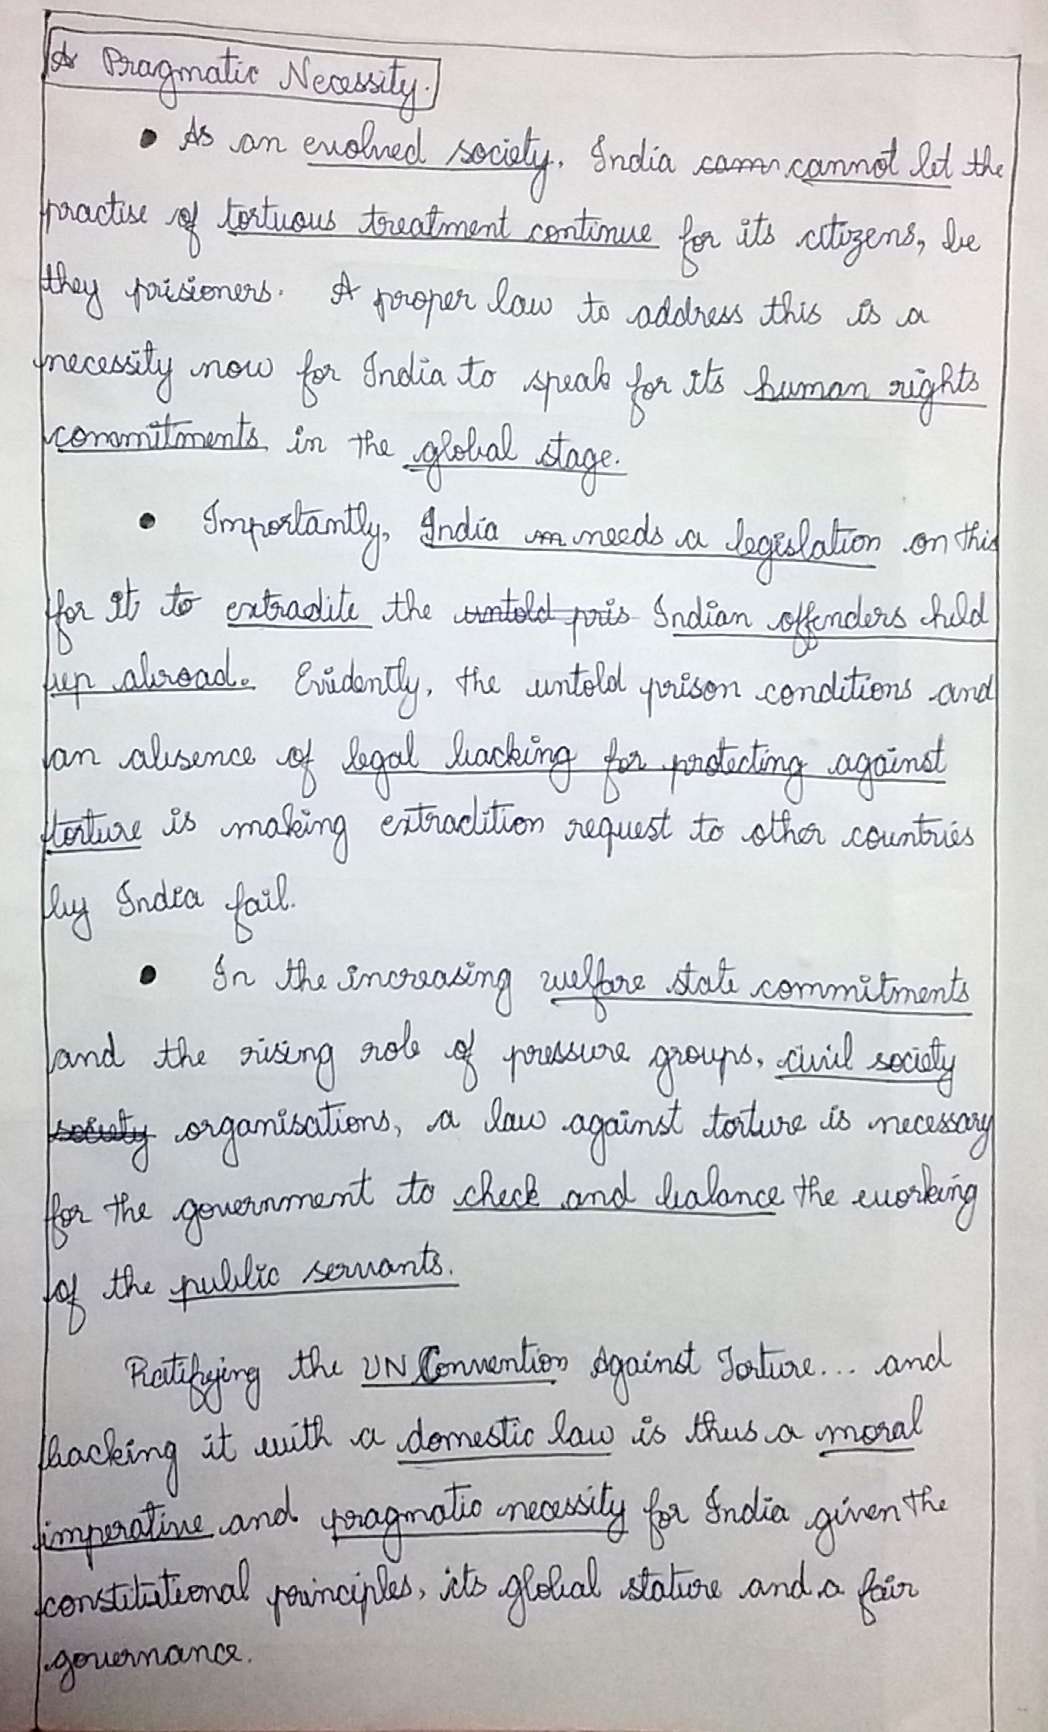 A Pragmatic Necessity.
• As an evolved society, India cannot let the
practise of tortuous treatment continue for its citizens, be
they prisioners. A proper law to address this is a
necessity now for India to speak for its human rights
commitments in the global stage.
• Importantly, India needs a legislation on this
for it to extradite the untold pris Indian offenders held
up abroad. Evidently, the untold prison conditions and
an absence of legal backing for protecting against
torture is making extradition request to other countries
by India fail.
• In the increasing welfare state commitments
and the rising role of pressure groups, civil society
society organisations, a law against torture is necessary
for the government to check and balance the working
of the public servants.
Ratifying the UN Convention Against Torture... and
backing it with a domestic law is thus a moral
imperative and pragmatic necessity for India given the
constitutional principles, its global stature and a fair
governance.